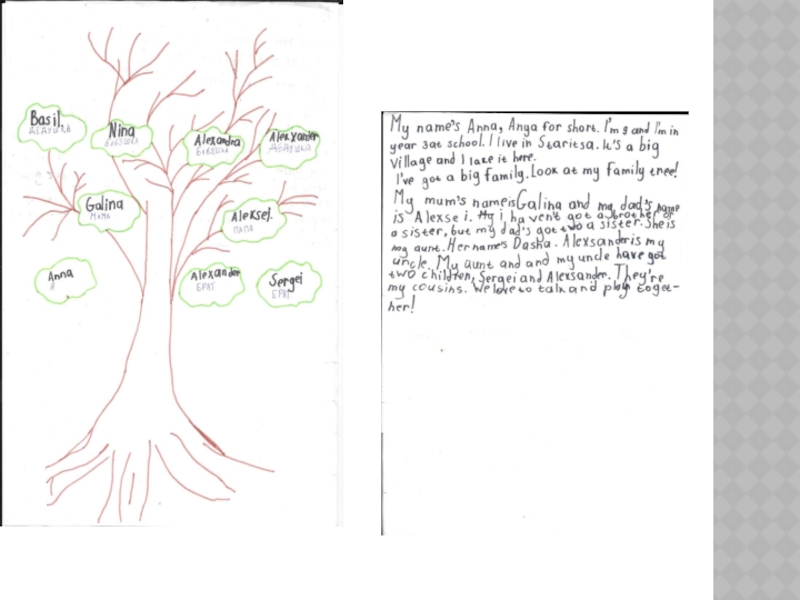 Basil.
ДЕДУШКА
Nina
БАБУШКА
Alexandra
БАБУШКА
Alexxander
ДЕДУШКА
Galina
МАМА
Aleksei.
ПАПА
Anna
Я
Alexander
БРАТ
Sergei
БРАТ
My name's Anna, Anya for short. I'm 9 and I'm in
year 3 at school. I live in Staritsa. It's a big
village and I like it here.
I've got a big family. Look at my family tree!
My mum's name is Galina and my dad's name
is Alexsei. I haven't got a brother or
a sister, but my dad's got a sister. She is
my aunt. Her name's Dasha. Alexsander is my
uncle. My aunt and and my uncle have got
two children, Sergei and Alexsander. They're
my cousins. We love to talk and play toget-
her!